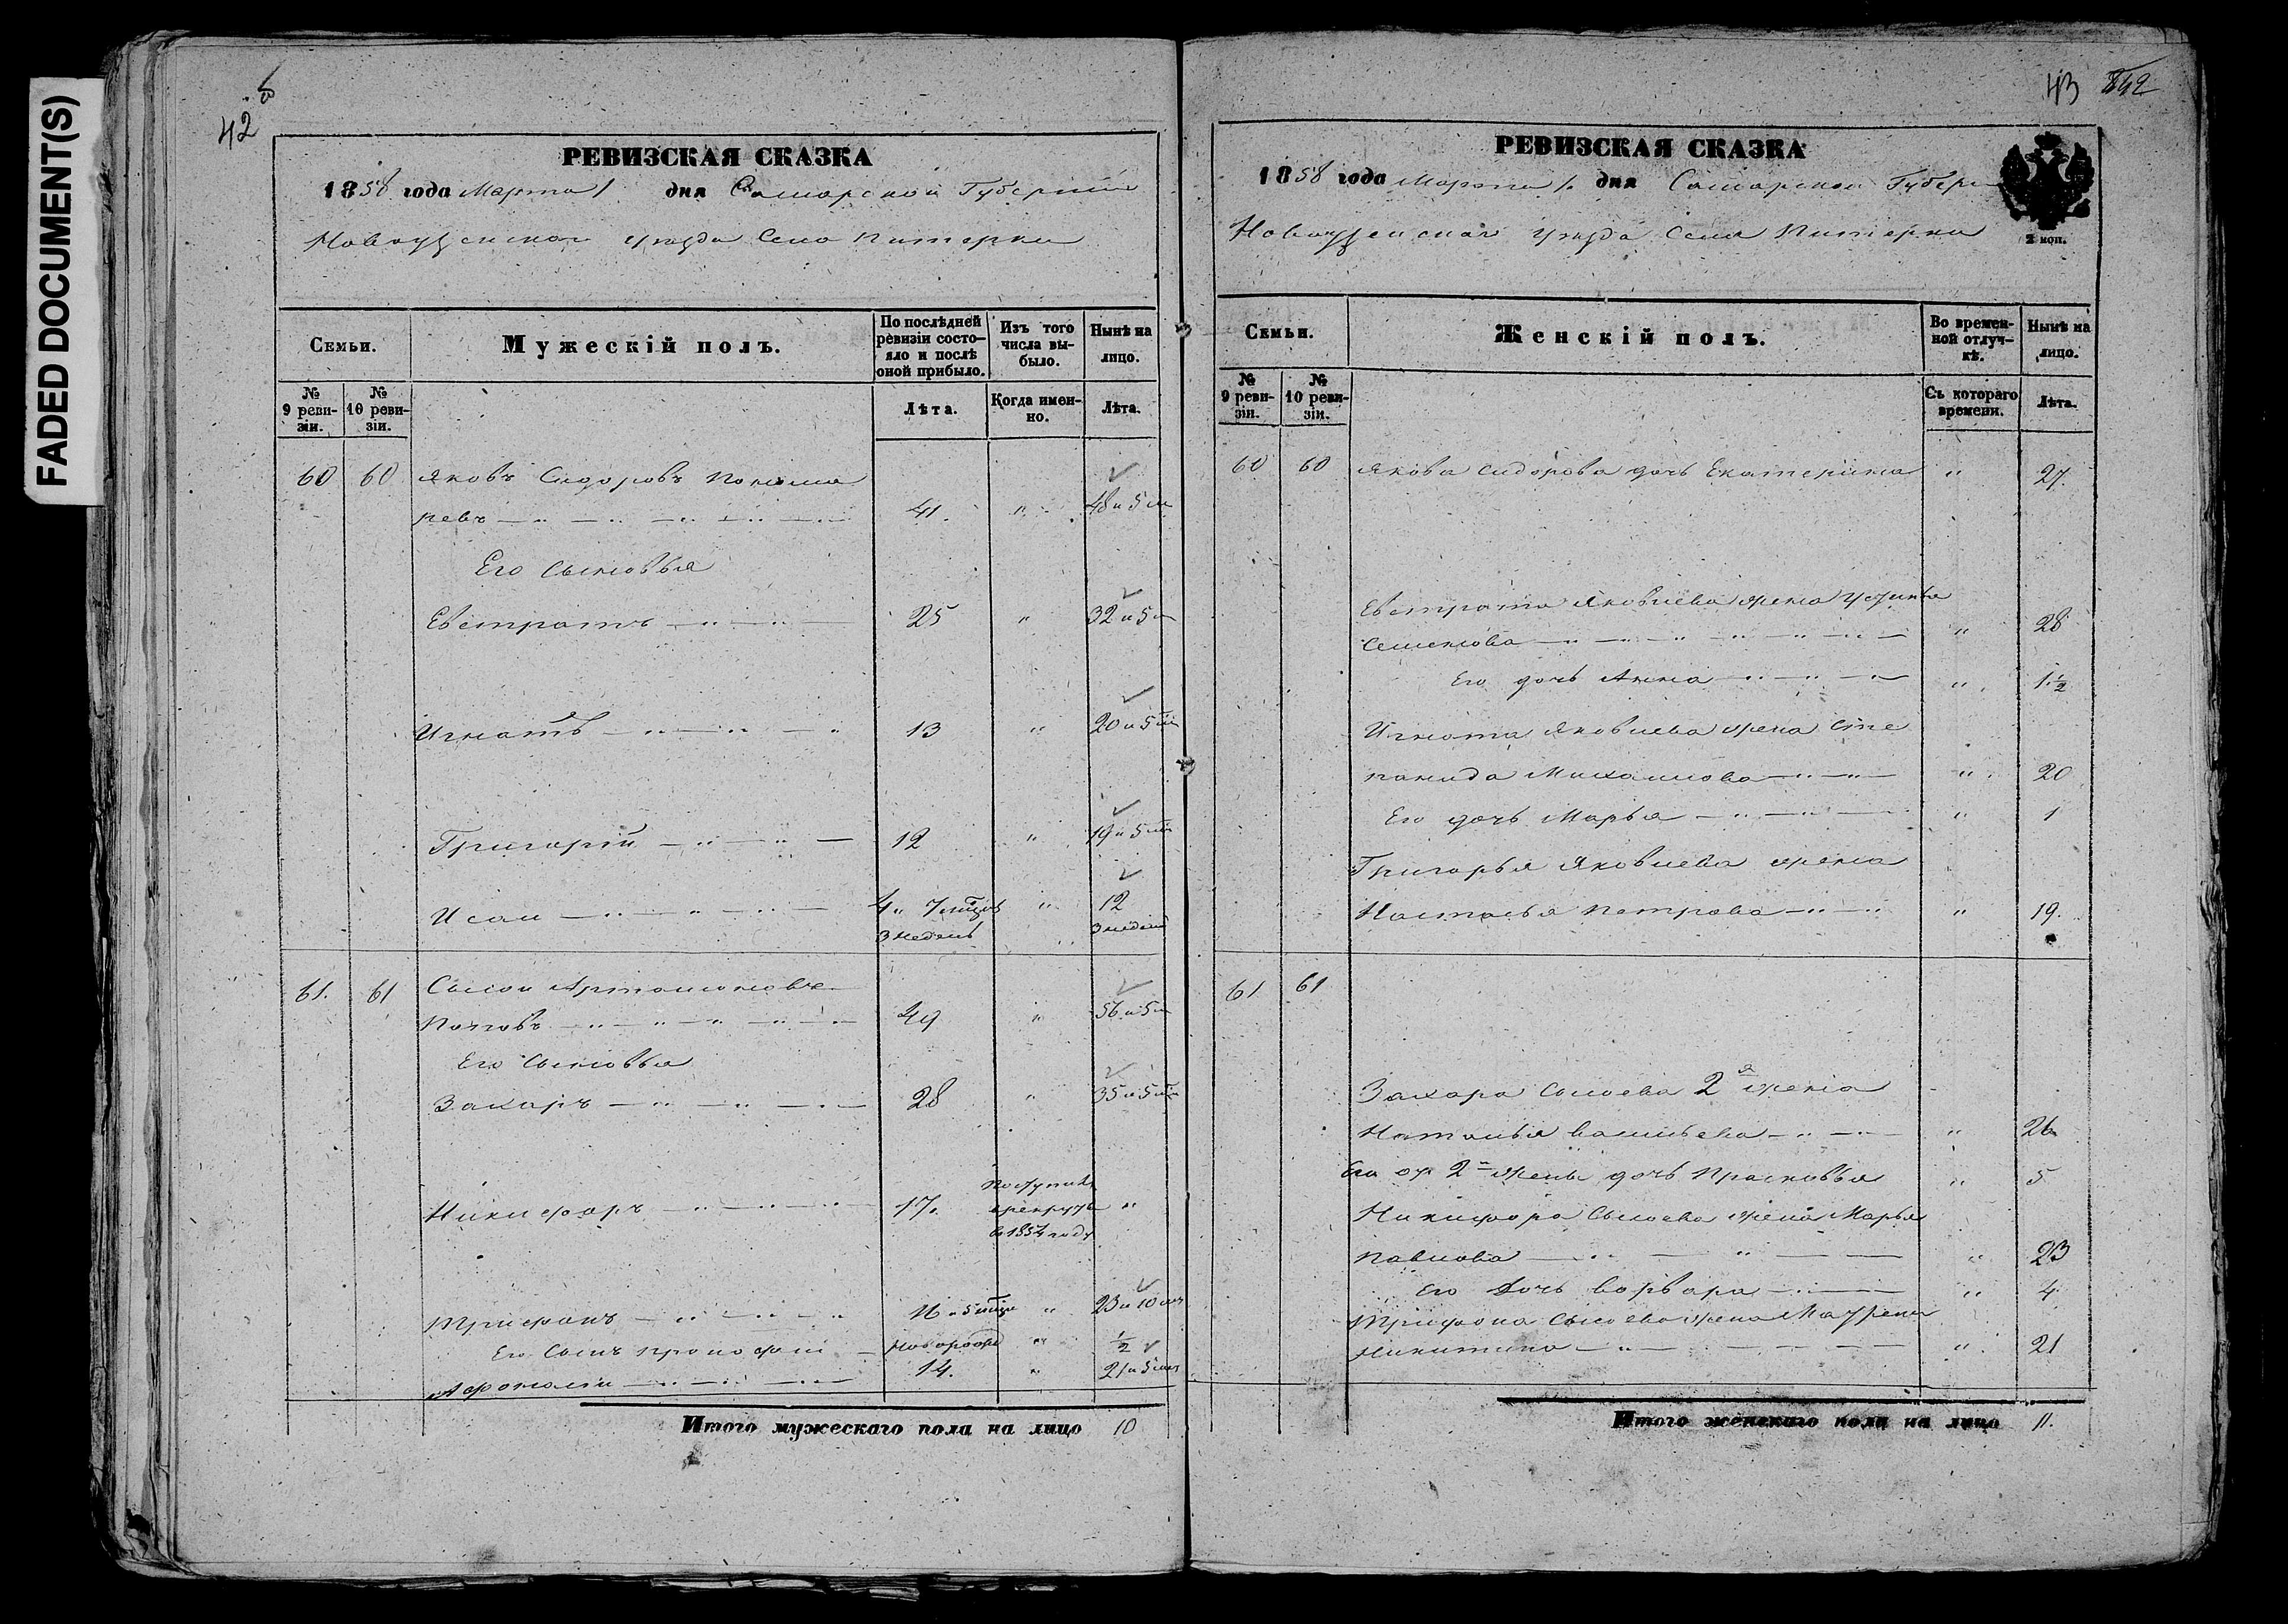 FADED DOCUMENT(S)
42
РЕВИЗСКАЯ СКАЗКА
1858 года Марта 1 дня Самарской Губернии
Новоузенскаго уезда Села Питерки
Семьи.
Мужескій полъ.
По послѣдней ревизіи состояло и послѣ оной прибыло.
Изъ того числа выбыло.
Нынѣ на лицо.
№ 9 ревизіи.
№ 10 ревизіи.
Лѣта.
Когда именно.
Лѣта.
60 60 Яковъ Сидоровъ Понома
ревъ 41. " 48 и 5 м
Его Сыновья
Евстратъ 25 " 32 и 5 м
Игнатъ 13 " 20 и 5 м
Григорій 12 " 19 и 5 м
Исай 4 " 7 мцов " 12
3 недель 3 недел
61. 61 Сысой Артамоновъ
Поповъ 49 " 56 и 5 м
Его Сыновья
Захаръ 28 " 35 и 5 м
Поступил
Никифоръ 17. в рекруты "
в 1854 году
Трифонъ 16 " 5 мцов " 23 и 10 м
Его Сынъ Прокофій новорож " 1/2
Афонасій 14. " 21 и 5 м
Итого мужескаго пола на лицо 10
43
РЕВИЗСКАЯ СКАЗКА
1858 года Марта 1. дня Самарской Губерн
Новоузенскаго уезда Села Питерки
2 коп.
Семьи.
Женскій полъ.
Во временной отлучкѣ.
Нынѣ на лицо.
№ 9 ревизіи.
№ 10 ревизіи.
Съ котораго времени.
Лѣта.
60 60 Якова Сидорова дочь Екатерина " 27.
Евстрата Яковлева жена Устинья
Семенова " 28
Его дочь Анна " 1 1/2
Игната Яковлева жена Сте
панида Михаилова " 20
Его дочь Марья " 1
Григорья Яковлева жена
Настасья Петрова " 19.
61 61
Захара Сысоева 2я жена
Наталья Васильева " 26
Его от 2й жены дочь Прасковья " 5
Никифора Сысоева жена Марья
Павлова " 23
Его Дочь Варвара " 4
Трифона Сысоева жена Маурена
Никитина " 21
Итого женскаго пола на лицо 11.